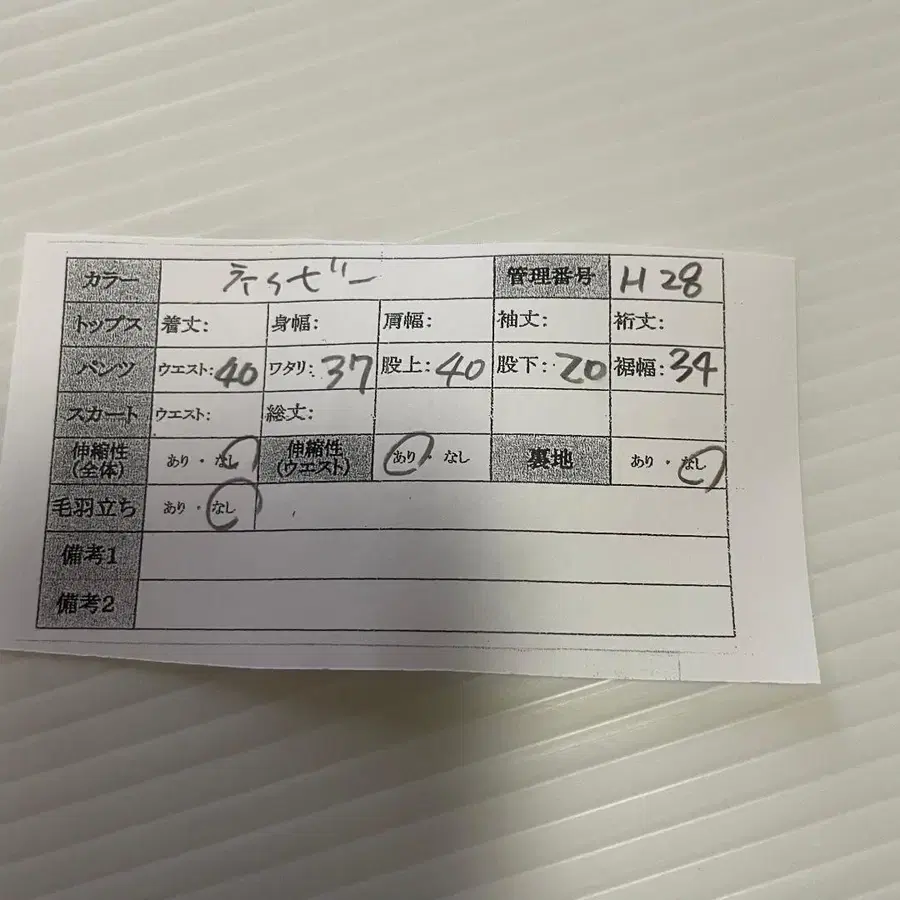 カラー 管理番号 H28
トップス 着丈: 身幅: 肩幅: 袖丈: 裄丈:
パンツ ウエスト:40 ワタリ:37 股上:40 股下:20 裾幅:34
スカート ウエスト: 総丈:
伸縮性 あり・なし 伸縮性 あり・なし 裏地 あり・なし
(全体) (ウエスト)
毛羽立ち あり・なし
備考1
備考2